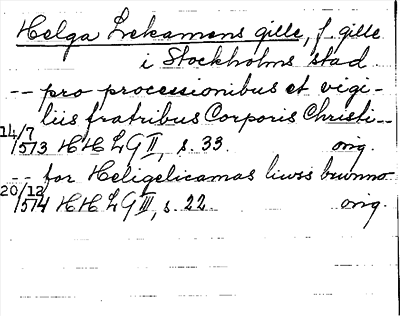 Helga Lekamens gille, f. gille
i Stockholms stad
-- pro processionibus et vigi-
liis fratribus Corporis Christi --
14/7
1513 HHLG II, s. 33. orig.
-- for Heligelicamas liwss brwnno
20/12
1514 HHLG III, s. 22. orig.